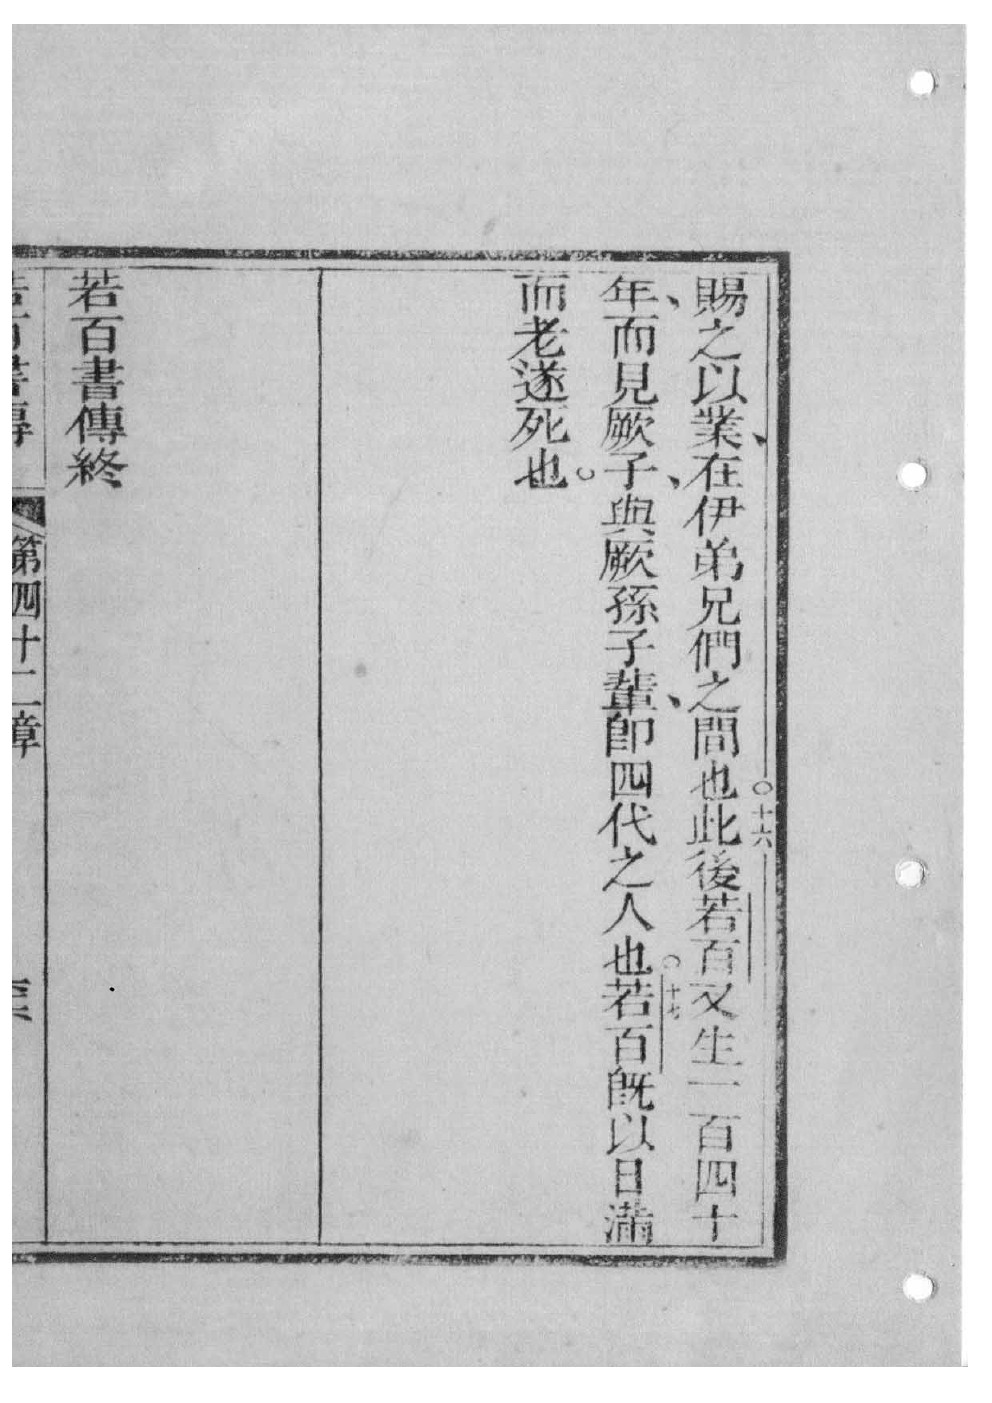 賜之以業、在伊弟兄們之間也○十六此後若百又生一百四十
年、而見厥子、與厥孫子輩、即四代之人也○十七若百既以日滿
而老遂死也。
若百書傳終
若百書傳 第四十二章